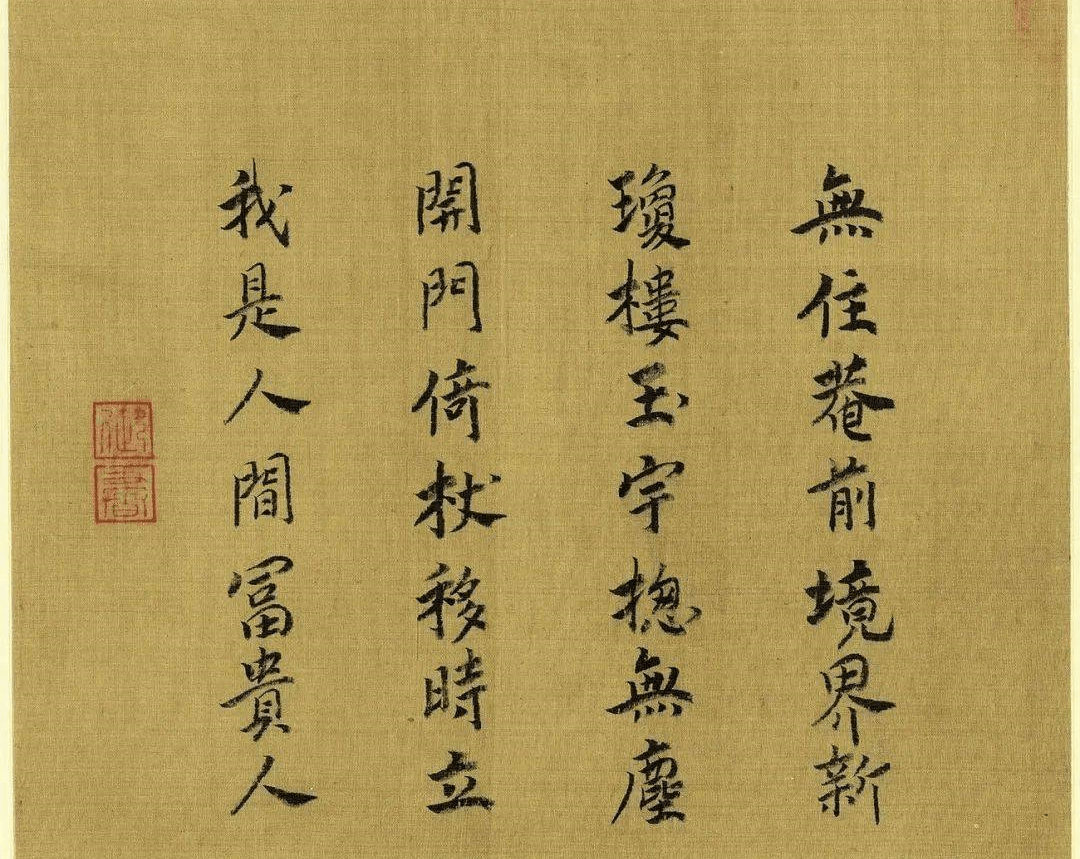 無住菴前境界新
瓊樓玉宇揔無塵
開門倚杖移時立
我是人間富貴人
御書